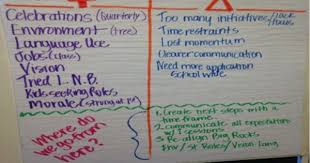 Celebrations (Quarterly)
Environment (tree)
Language Use
Jobs (class)
Vision
Tried I.N.B.
Kids seeking Rules
Morale (strong at PM)
Too many initiatives/lack focus
Time restraints
Lost momentum
Clearer communication
Need more application
School wide
Where do
we go from
here?
1. Create next steps with a
time frame
2. Communicate all expectations
w/ sessions
3. Re-align Big Rocks
Env/St Roles/Vision/Lang